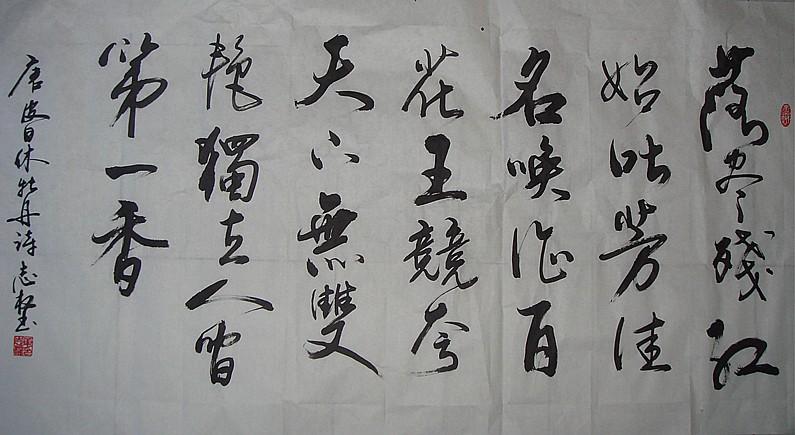 落尽残红
始吐芳佳
名唤作百
花王競夸
天下無雙
艳獨立人间
第一香
唐皮日休牡丹詩志